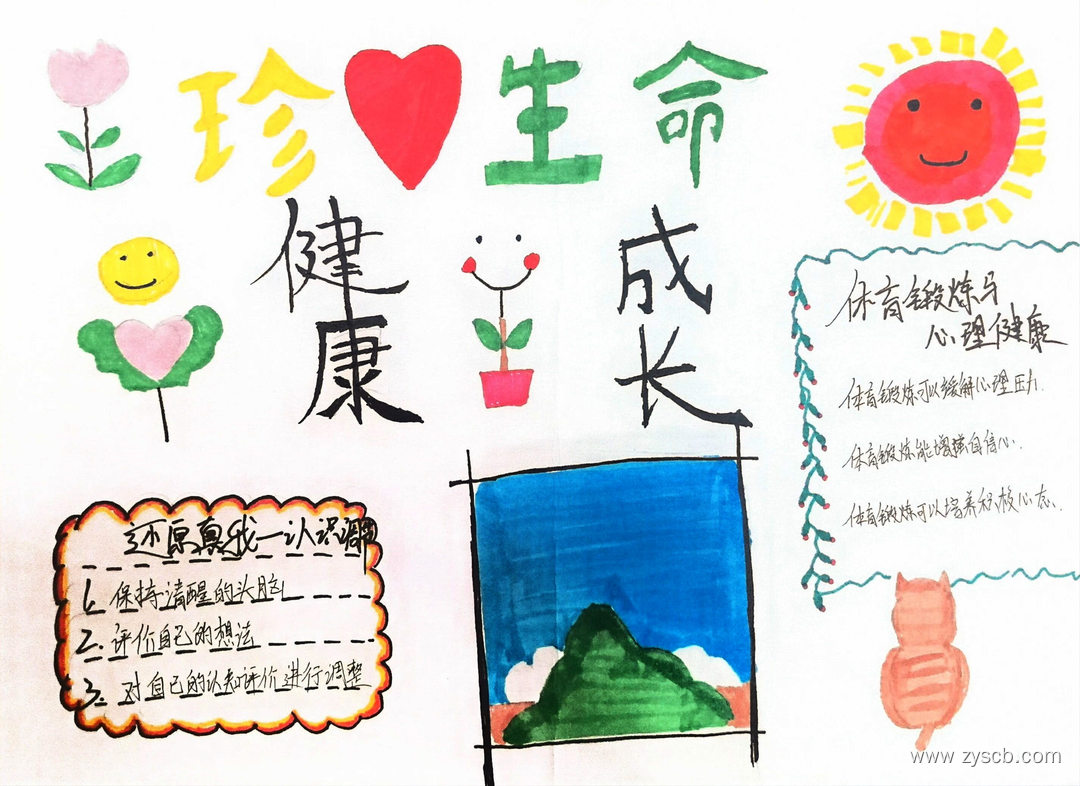 珍 生命
健康
成长
体育锻炼与
心理健康
体育锻炼可以缓解心理压力.
体育锻炼能增强自信心.
体育锻炼可以培养积极心态.
还原真我—认识调
1. 保持清醒的头脑
2. 评价自己的想法
3. 对自己的认知评价进行调整
www.zyscb.com